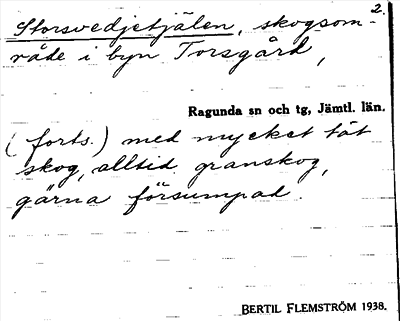 2.
Storsvedjetjälen, skogsom-
råde i byn Torsgård,
Ragunda sn och tg, Jämtl. län.
(forts.) med mycket tät
skog, alltid granskog,
gärna försumpad.
BERTIL FLEMSTRÖM 1938.